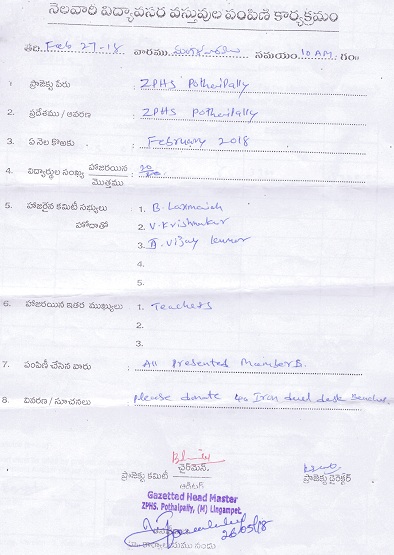 నెలవారీ విద్యావసర వస్తువుల పంపిణీ కార్యక్రమం
తేది Feb 27-18 వారము మంగళవారం సమయం 10 AM గం॥
1 ప్రాజెక్టు పేరు : ZPHS Pothaipally
2. ప్రదేశము / ఆవరణ : ZPHS Pothaipally
3. ఏ నెల కొఱకు : February 2018
4. విద్యార్థుల సంఖ్య హాజరయిన : 20
మొత్తము
5. హాజరైన కమిటి సభ్యులు 1. B. Laxmaiah
హోదాతో 2. V. Krishnakar
3. Vijay kumar
4.
5.
6. హాజరయిన ఇతర ముఖ్యులు 1. Teachers
2.
3.
7. పంపిణీ చేసిన వారు : All Presented Mumbers.
8. వివరణ / సూచనలు : Please donate 40 Iron duel desk Benches.
ప్రాజెక్టు కమిటీ చైర్మెన్. ప్రాజెక్టు డైరెక్టర్
ఆడిటర్
Gazetted Head Master
ZPHS. Pothaipally, (M) Lingampet.
26/05/18